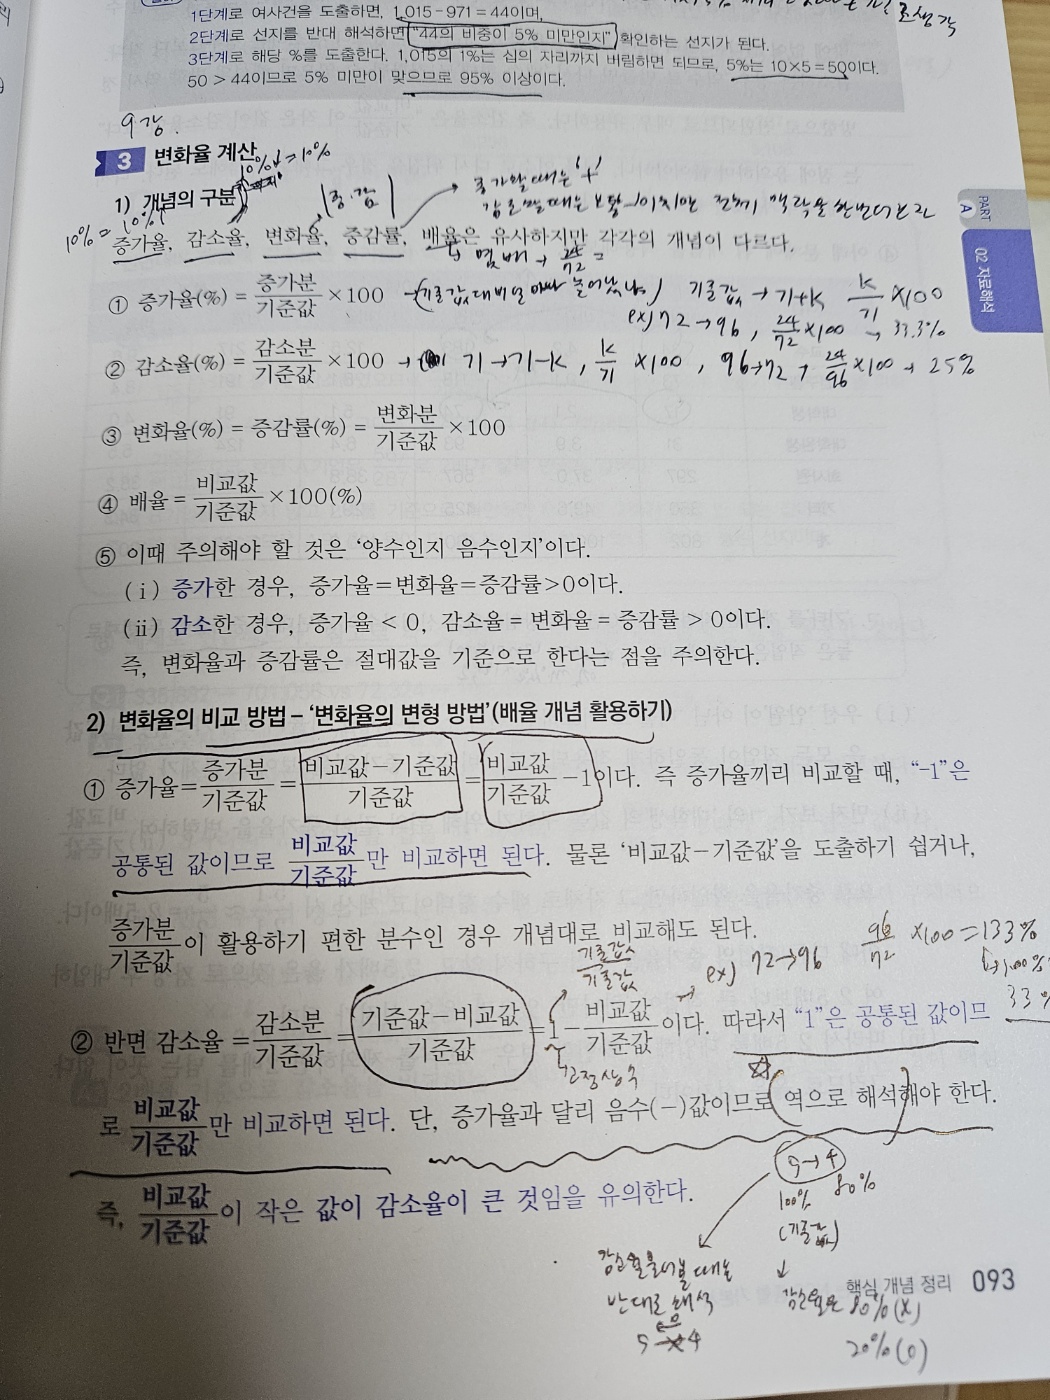 1단계로 여사건을 도출하면, 1,015-971=44이며,
2단계로 선지를 반대 해석하면 "44의 비중이 5% 미만인지" 확인하는 선지가 된다.
3단계로 해당 %를 도출한다. 1,015의 1%는 십의 자리까지 버림하면 되므로, 5%는 10×5=50이다.
50 > 44이므로 5% 미만이 맞으므로 95% 이상이다.
9강.
3 변화율 계산
1) 개념의 구분
증가율, 감소율, 변화율, 증감률, 배율은 유사하지만 각각의 개념이 다르다.
① 증가율(%) = 증가분/기준값 ×100
기준값 → 기+k k/기 ×100
ex) 72→96, 24/72 ×100 → 33.3%
② 감소율(%) = 감소분/기준값 ×100 → 기→기-k, k/기 ×100, 96→72, 24/96 ×100 → 25%
③ 변화율(%) = 증감률(%) = 변화분/기준값 ×100
④ 배율 = 비교값/기준값 ×100(%)
⑤ 이때 주의해야 할 것은 '양수인지 음수인지'이다.
(ⅰ) 증가한 경우, 증가율=변화율=증감률>0이다.
(ⅱ) 감소한 경우, 증가율 < 0, 감소율 = 변화율 = 증감률 > 0이다.
즉, 변화율과 증감률은 절대값을 기준으로 한다는 점을 주의한다.
2) 변화율의 비교 방법 - '변화율의 변형 방법'(배율 개념 활용하기)
① 증가율= 증가분/기준값 = 비교값-기준값/기준값 = 비교값/기준값 -1이다. 즉 증가율끼리 비교할 때, "-1"은
공통된 값이므로 비교값/기준값 만 비교하면 된다. 물론 '비교값-기준값'을 도출하기 쉽거나,
증가분/기준값 이 활용하기 편한 분수인 경우 개념대로 비교해도 된다.
ex) 72→96 96/72 ×100=133%
33%
기준값/기준값
② 반면 감소율 = 감소분/기준값 = 기준값-비교값/기준값 = 1- 비교값/기준값 이다. 따라서 "1"은 공통된 값이므
고정상수
로 비교값/기준값 만 비교하면 된다. 단, 증가율과 달리 음수(-)값이므로 역으로 해석해야 한다.
5→4
100% 80%
(기준값)
즉, 비교값/기준값 이 작은 값이 감소율이 큰 것임을 유의한다.
반대로 해석
감소율은 80%(X)
20%(O)
핵심 개념 정리 093
PART A
02 자료해석